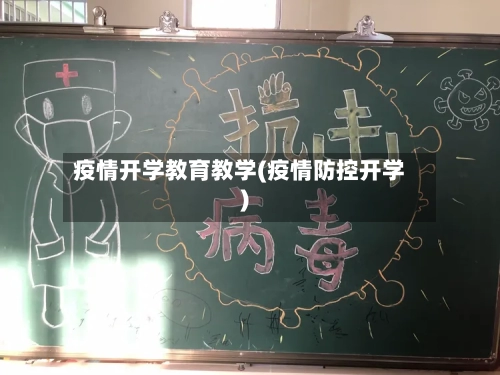 抗击
疫情开学教育教学(疫情防控开学
)
病毒